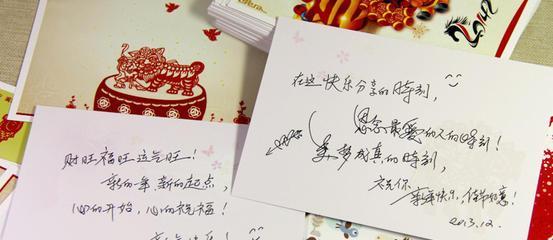 2014
在这快乐分享的时刻，
思念最爱的人的时刻！
美梦成真的时刻，
祝你
年年快乐，佳节如意！
2013.12.
财旺福旺运气旺！
新的一年 新的起点，
心的开始，心的祝福！